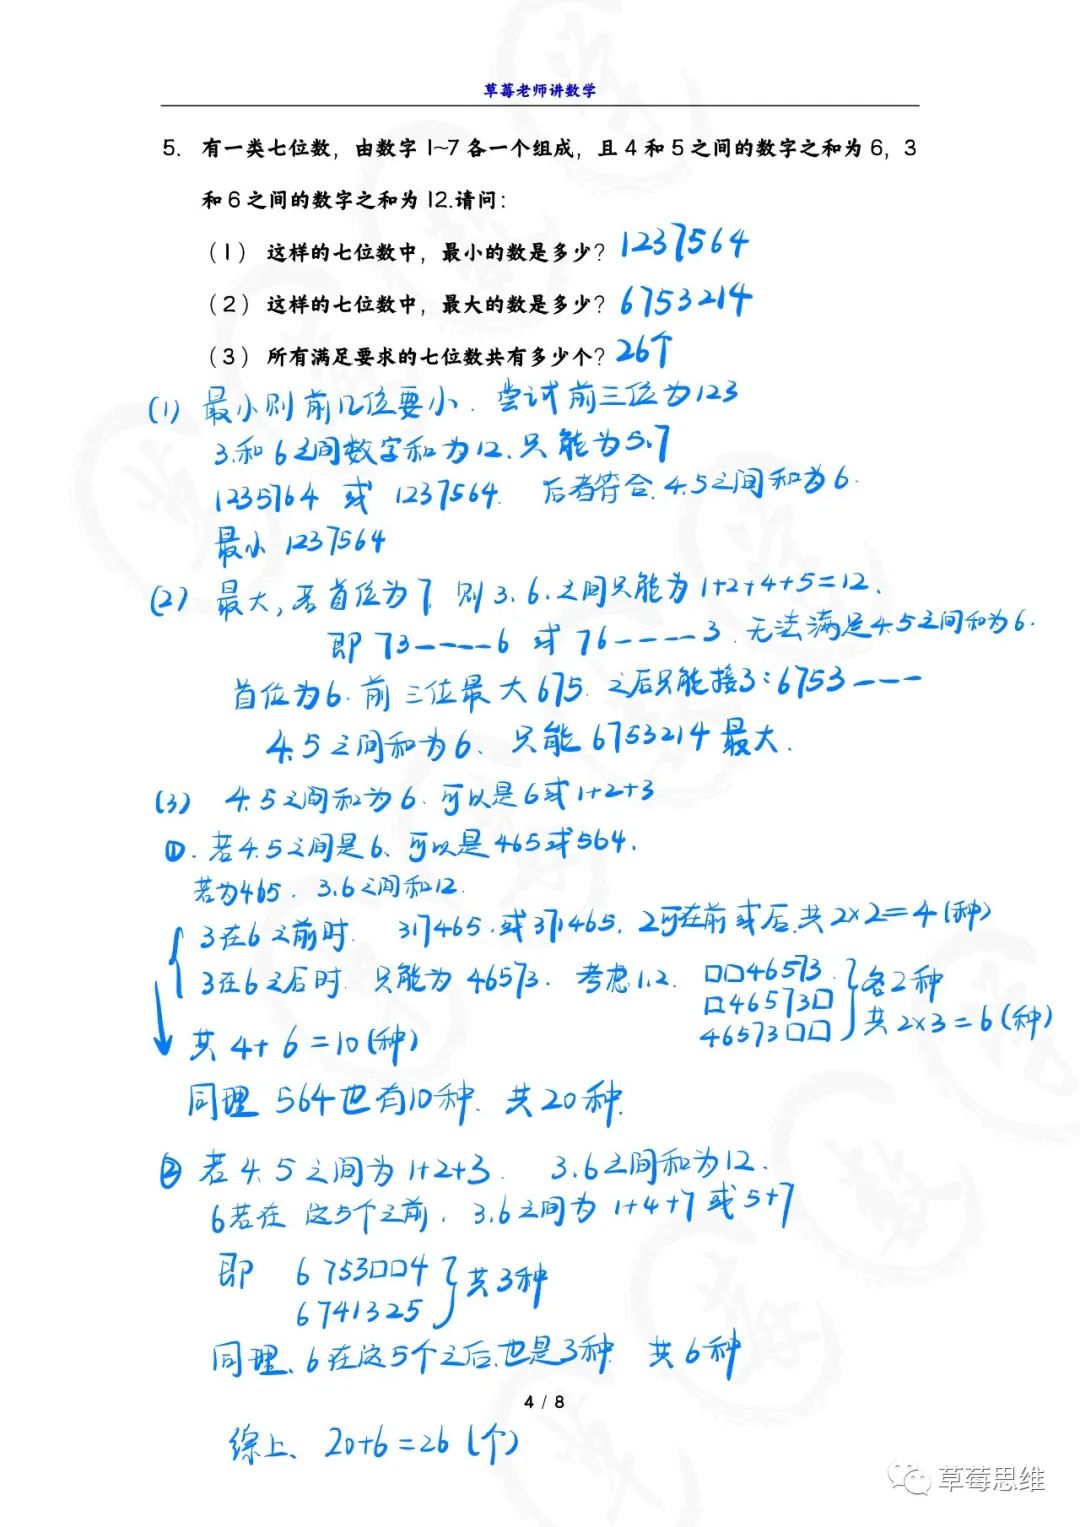 草莓老师讲数学
5. 有一类七位数，由数字 1~7 各一个组成，且 4 和 5 之间的数字之和为 6，3
和 6 之间的数字之和为 12.请问：
（1） 这样的七位数中，最小的数是多少？ 1237564
（2） 这样的七位数中，最大的数是多少？ 6753214
（3） 所有满足要求的七位数共有多少个？ 26个
(1) 最小则前几位要小. 尝试前三位为123
3.和6之间数字和为12.只能为5.7
1235764 或 1237564. 后者符合.4.5之间和为6.
最小 1237564
(2) 最大,若首位为7, 则3、6.之间只能为1+2+4+5=12.
即 73----6 或 76----3.无法满足4.5之间和为6.
首位为6.前三位最大675.之后只能接3:6753---
4.5之间和为6、只能6753214最大.
(3) 4.5之间和为6.可以是6或1+2+3
①.若4.5之间是6、可以是465或564.
若为465. 3.6之间和12.
3在6之前时. 317465.或371465.2可在前或后.共2×2=4(种)
3在6之后时.只能为46573.考虑1.2. □□46573 各2种
□46573□
46573□□ 共2×3=6(种)
共4+6=10(种)
同理 564也有10种、共20种.
② 若4.5之间为1+2+3. 3.6之间和为12.
6若在这5个之前.3.6之间为1+4+7或5+7
即 6753□□4 共3种
6741325
同理、6在这5个之后.也是3种 共6种
4 / 8
综上、20+6=26(个)
草莓思维